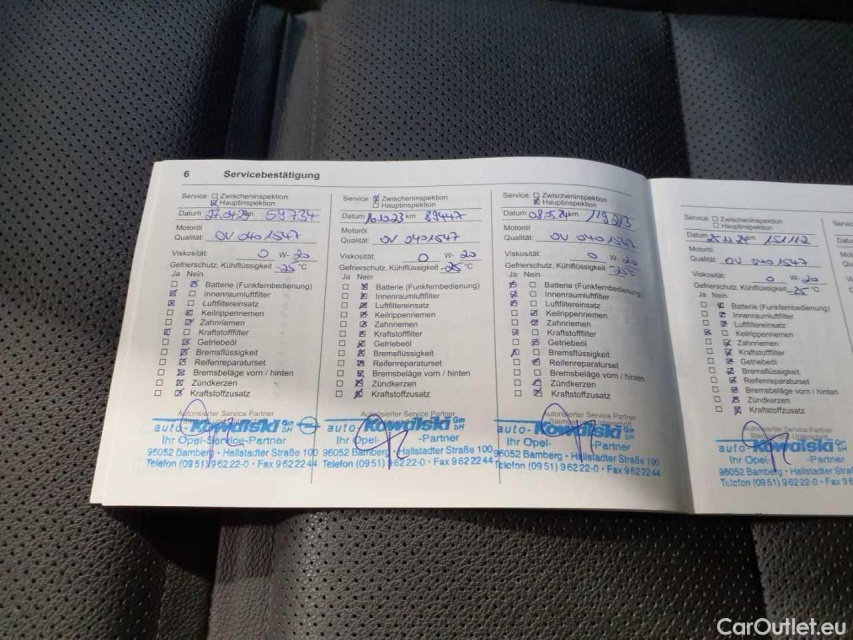 6 Servicebestätigung
Service: Zwischeninspektion
Hauptinspektion
Datum km 59734
Motoröl
Qualität: OV 0401547
Viskosität: 0 W- 20
Gefrierschutz, Kühlflüssigkeit -25 °C
Ja Nein
Batterie (Funkfernbedienung)
Innenraumluftfilter
Luftfiltereinsatz
Keilrippenriemen
Zahnriemen
Kraftstofffilter
Getriebeöl
Bremsflüssigkeit
Reifenreparaturset
Bremsbeläge vorn / hinten
Zündkerzen
Kraftstoffzusatz
Autorisierter Service Partner
auto-Kowalski GmbH
Ihr Opel-Service-Partner
96052 Bamberg · Hallstadter Straße 100
Telefon (0951) 96222-0 · Fax 9622244
Service: Zwischeninspektion
Hauptinspektion
Datum 16.10.23 km 89447
Motoröl
Qualität: OV 0401547
Viskosität: 0 W- 20
Gefrierschutz, Kühlflüssigkeit -25 °C
Ja Nein
Batterie (Funkfernbedienung)
Innenraumluftfilter
Luftfiltereinsatz
Keilrippenriemen
Zahnriemen
Kraftstofffilter
Getriebeöl
Bremsflüssigkeit
Reifenreparaturset
Bremsbeläge vorn / hinten
Zündkerzen
Kraftstoffzusatz
Autorisierter Service Partner
auto-Kowalski GmbH
Ihr Opel- -Partner
96052 Bamberg · Hallstadter Straße 100
Telefon (0951) 96222-0 · Fax 9622244
Service: Zwischeninspektion
Hauptinspektion
Datum 08.5.24 km
Motoröl
Qualität: OV 0401547
Viskosität: 0 W- 20
Gefrierschutz, Kühlflüssigkeit -25 °C
Ja Nein
Batterie (Funkfernbedienung)
Innenraumluftfilter
Luftfiltereinsatz
Keilrippenriemen
Zahnriemen
Kraftstofffilter
Getriebeöl
Bremsflüssigkeit
Reifenreparaturset
Bremsbeläge vorn / hinten
Zündkerzen
Kraftstoffzusatz
Autorisierter Service Partner
auto-Kowalski GmbH
Ihr Opel- -Partner
96052 Bamberg · Hallstadter Straße 100
Telefon (0951) 96222-0 · Fax 9622244
Service: Zwischeninspektion
Hauptinspektion
Datum 25.11.24 km 151112
Motoröl
Qualität: OV 0401547
Viskosität: 0 W- 20
Gefrierschutz, Kühlflüssigkeit -25 °C
Ja Nein
Batterie (Funkfernbedienung)
Innenraumluftfilter
Luftfiltereinsatz
Keilrippenriemen
Zahnriemen
Kraftstofffilter
Getriebeöl
Bremsflüssigkeit
Reifenreparaturset
Bremsbeläge vorn / hinten
Zündkerzen
Kraftstoffzusatz
auto-Kowalski
Ihr Opel- -Partner
96052 Bamberg · Hallstadter Straße
Telefon (0951) 96222-0 · Fax 9
CarOutlet.eu